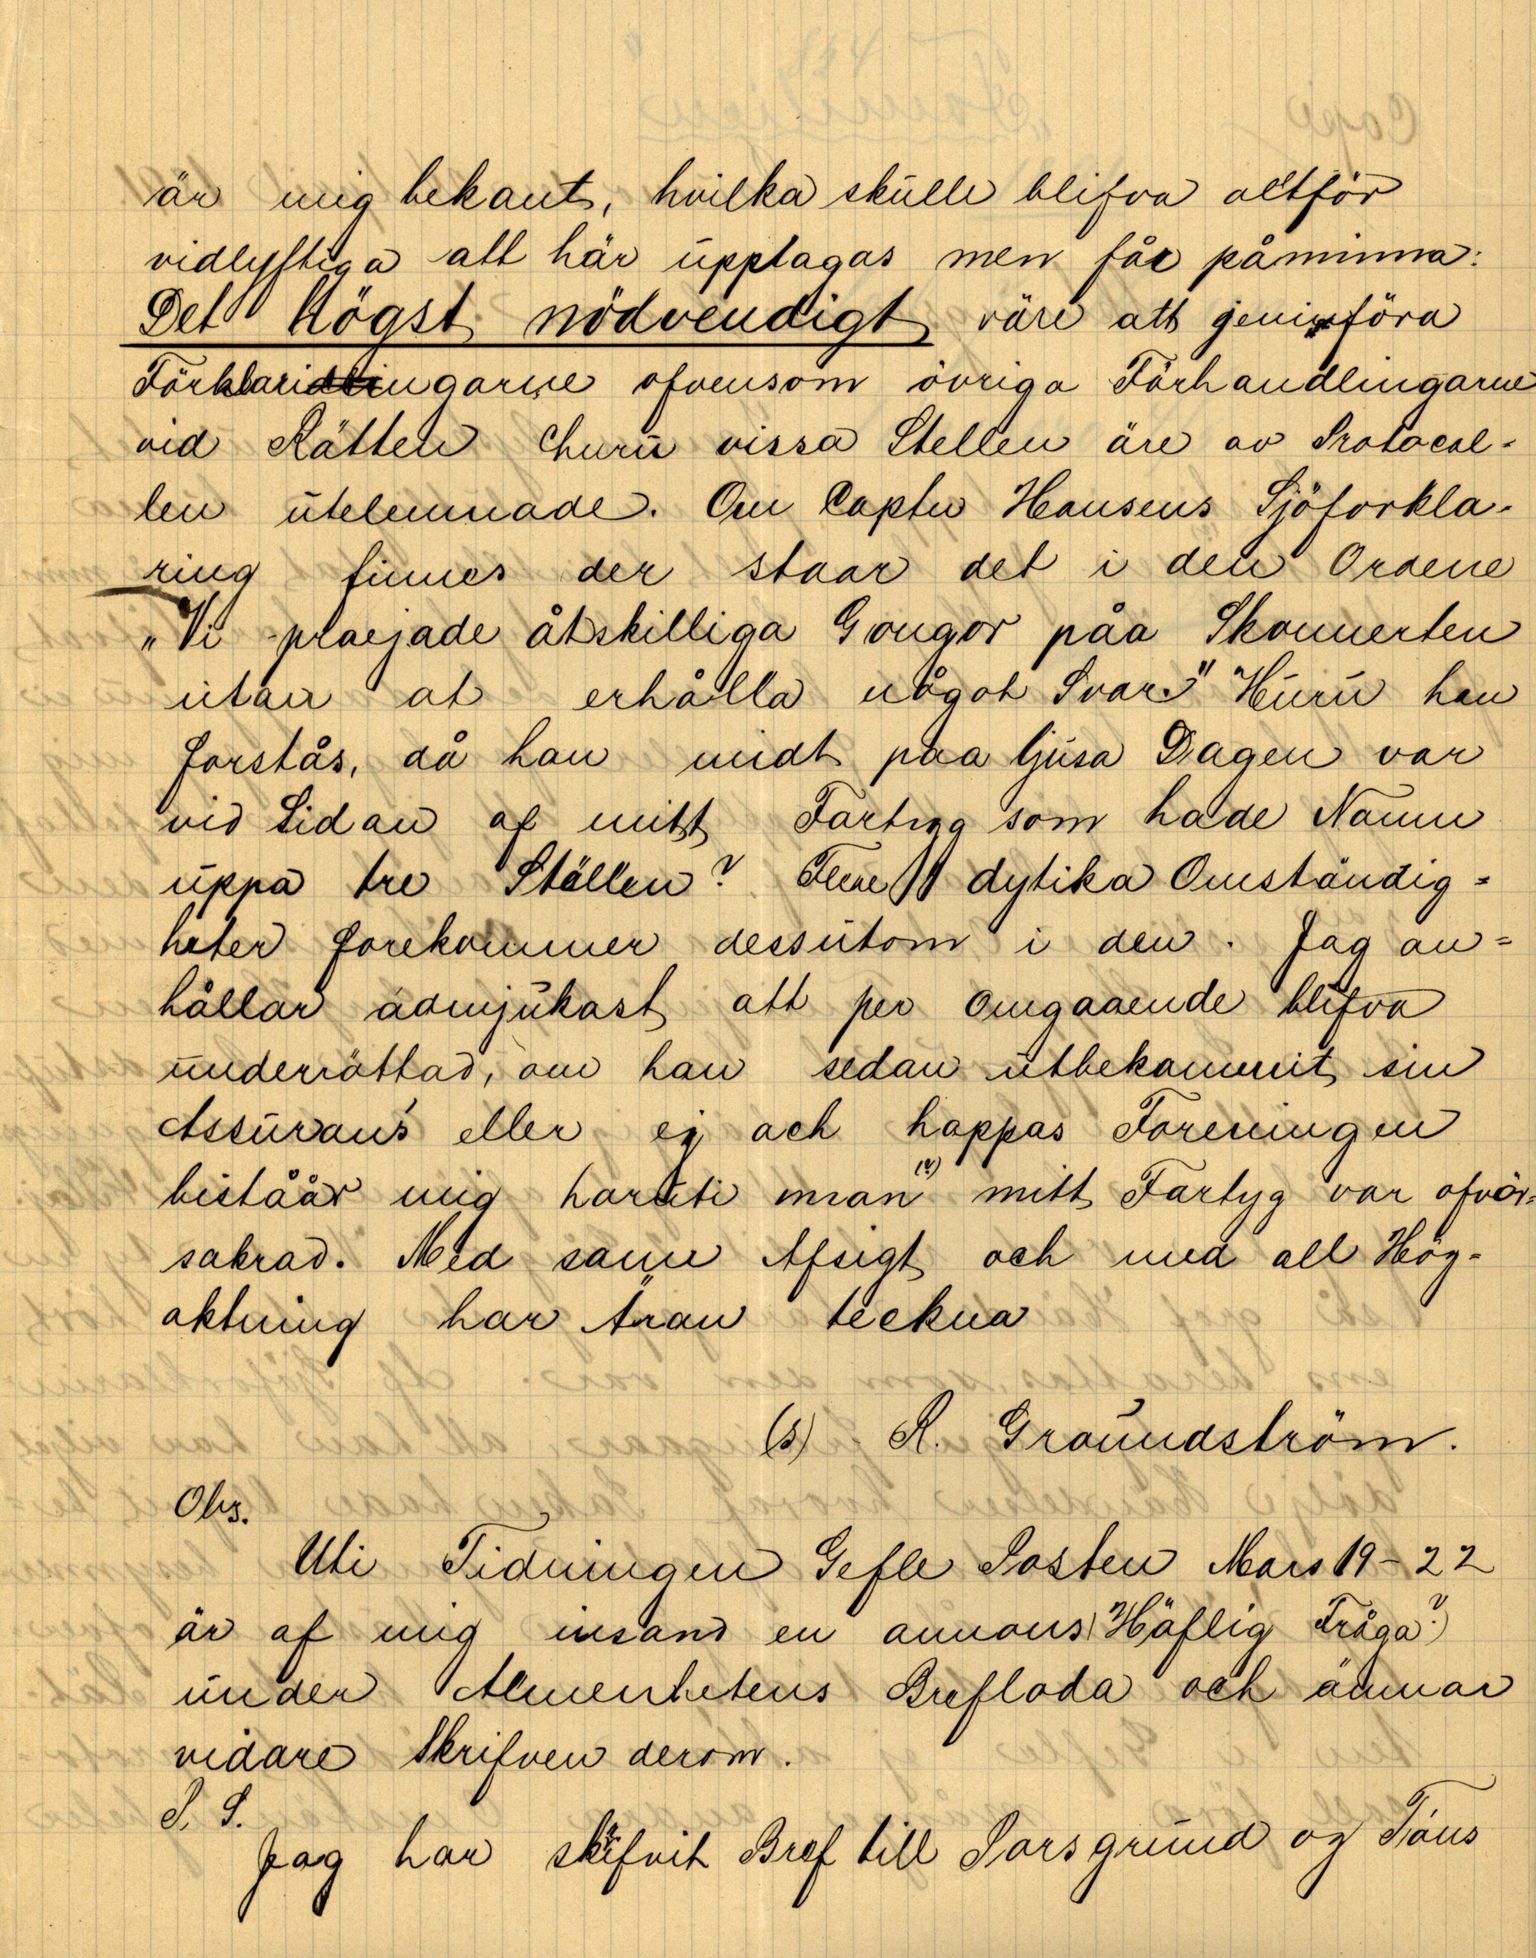 är mig bekant, hvilka skulle blifva altför
vidlyftiga att här upptagas men får påminna:
Det högst nödvendigt väre att jemnföra
Förklaringarne ofvensom övriga Förhandlingarne
vid Rätten churu vissa Stellen äre av Protocol-
len utelemnade. Om Captn Hansens Sjöforkla-
ring finnes der staar det i den Ordene
"Vi praejade åtskilliga Gongor påa Skonnerten
utan at erhålla något Svar." Huru kan
forstås, då han midt paa ljusa Dagen var
vid Sidan af mitt Fartyg som hade Namn
uppå tre Ställen? Flere dylika Omständig=
heter forekommer dessutom i den. Jag an=
hållar ödmjukast att per omgaaende blifva
underrättad, om han sedan utbekommit sin
Assurans eller ej och hoppas Foreningen
biståår mig haruti man (?) mitt Fartyg var oför=
sakrad. Med same Afsigt och med all Hög-
aktning har Äran teckna
(s) R. Groundström.
Obs.
Uti Tidningen Gefle Posten Mars 19-22
är af mig insand en annons (Höflig Fråga?)
under Almenhetens Brefloda och ämnar
vidare Skrifven derom.
P. S.
Jag har skrifvit Bref till Porsgrund og Töns